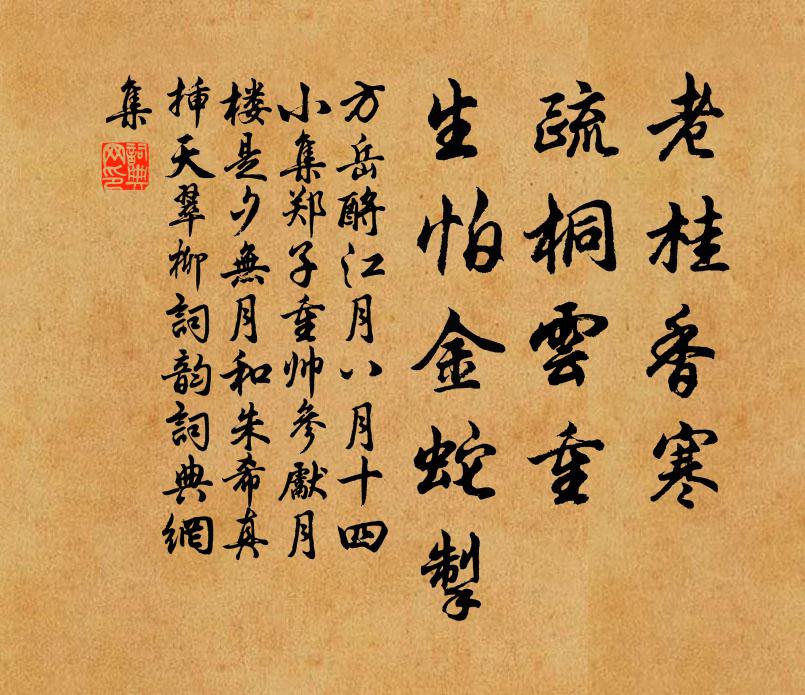 老桂香寒
疏桐雲重
生怕金蛇掣
方岳酹江月八月十四
小集郑子重帅參獻月
楼是夕無月和朱希真
插天翠柳詞韵詞典網
集
詞典網印